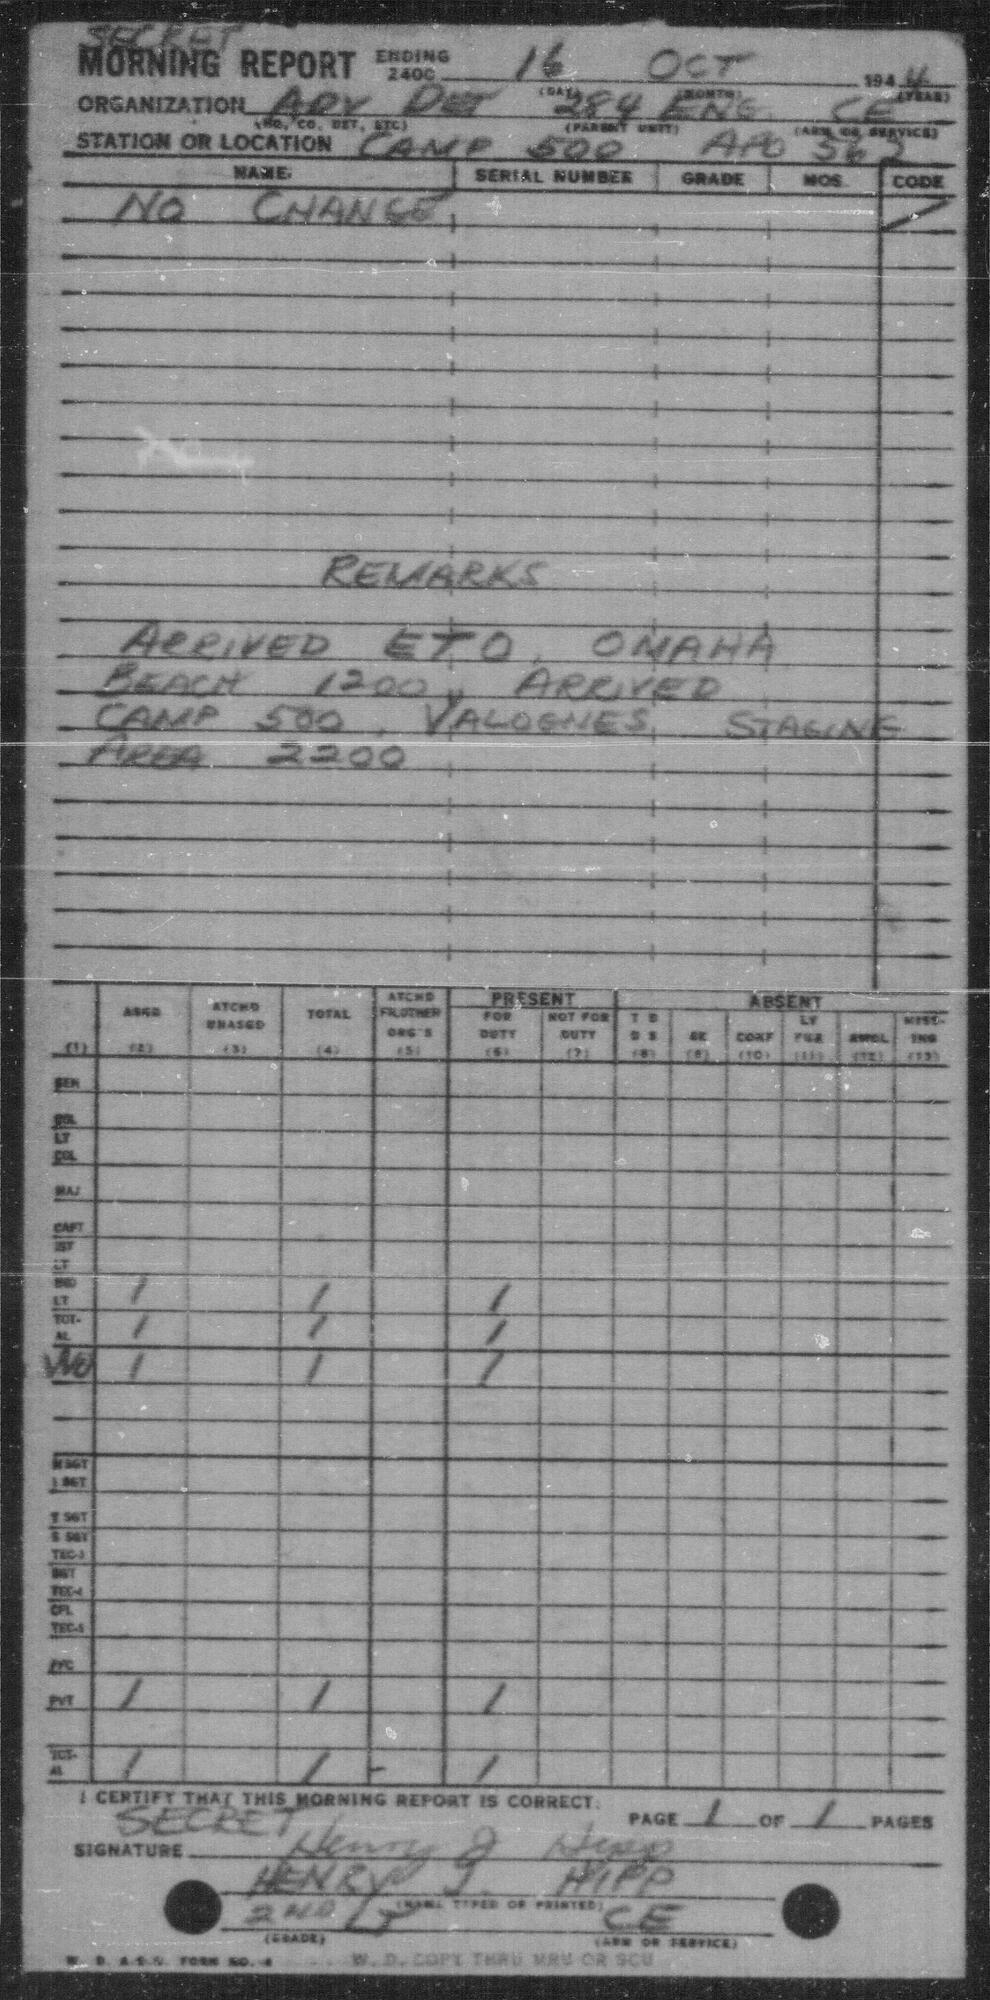 SECRET
MORNING REPORT ENDING 2400 16 OCT 1944
(DAY) (MONTH) (YEAR)
ORGANIZATION ADV DET 284 ENG. CE
(HQ, CO, DET, ETC) (PARENT UNIT) (ARM OR SERVICE)
STATION OR LOCATION CAMP 500 APO 562
NAME SERIAL NUMBER GRADE MOS. CODE
NO CHANGE
REMARKS
ARRIVED ETO, OMAHA
BEACH 1200, ARRIVED
CAMP 500, VALOGNES, STAGING
AREA 2200
PRESENT ABSENT
ASGD ATCHD UNASGD TOTAL ATCHD FR OTHER ORG'S FOR DUTY NOT FOR DUTY T D D S SK CONF LV FUR AWOL MISS-ING
(1) (2) (3) (4) (5) (6) (7) (8) (9) (10) (11) (12) (13)
GEN
COL
LT COL
MAJ
CAPT
1ST LT
2ND LT 1 1 1
TOT-AL 1 1 1
WO 1 1 1
M SGT
1 SGT
T SGT
S SGT
TEC-3
SGT
TEC-4
CPL
TEC-5
PFC
PVT 1 1 1
TOT-AL 1 1 - 1
I CERTIFY THAT THIS MORNING REPORT IS CORRECT.
SECRET PAGE 1 OF 1 PAGES
SIGNATURE Henry J Hipp
HENRY J. HIPP
(NAME TYPED OR PRINTED)
2ND LT CE
(GRADE) (ARM OR SERVICE)
W. D. A.G.O. FORM NO. W. D. COPY THRU MRU OR SCU